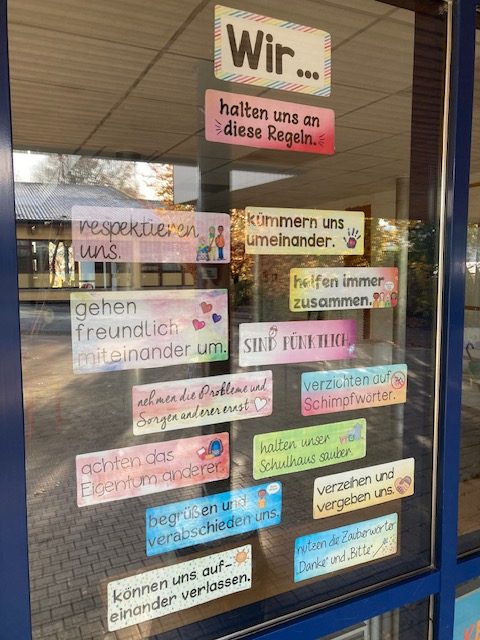 Wir...
halten uns an
diese Regeln.
respektieren
uns.
kümmern uns
umeinander.
helfen immer
zusammen.
gehen
freundlich
miteinander um.
SIND PÜNKTLICH
nehmen die Probleme und
Sorgen anderer ernst
verzichten auf
Schimpfwörter.
achten das
Eigentum anderer.
halten unser
Schulhaus sauber.
verzeihen und
vergeben uns.
begrüßen und
verabschieden uns.
nutzen die Zauberwörter
„Danke" und „Bitte".
können uns auf-
einander verlassen.